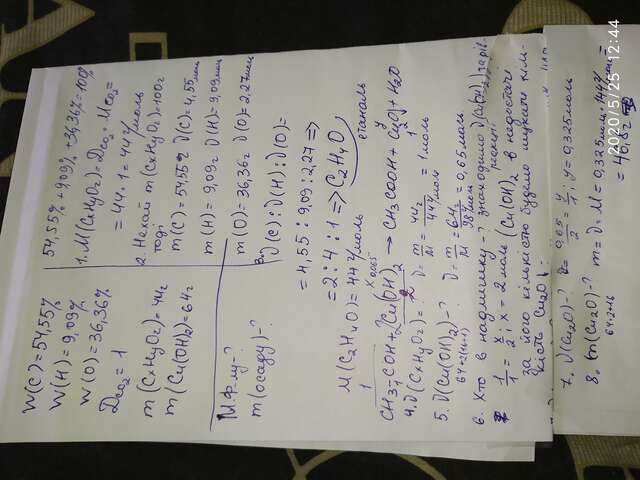 W(C)=54,55%
W(H)=9,09%
W(O)=36,36%
Dco2=1
m(CxHyOz)=44г
m(Cu(OH)2)=64г
Мф-лу-?
m(осаду)-?
54,55%+9,09%+36,36%=100%
1. M(CxHyOz)=Dco2·Mco2=
=44·1=44г/моль
2. Нехай m(CxHyOz)=100г
тоді
m(C)=54,55г ν(C)=4,55моль
m(H)=9,09г ν(H)=9,09моль
m(O)=36,36г ν(O)=2,27моль
3. ν(C):ν(H):ν(O)=
=4,55:9,09:2,27=>
=2:4:1=>C2H4O
M(C2H4O)=44г/моль етаналь
1 x 0,65 y
CH3-COH+2Cu(OH)2→CH3COOH+Cu2O+H2O
1 2 1
4. ν(CxHyOz)-? ν=m/M=44г/44г/моль=1моль
5. ν(Cu(OH)2)-? ν=m/M=64г/98г/моль=0,65моль
64+2(16+1)
6. Хто в надлишку-? знаходимо ν(Cu(OH)2)теорів-
1/1=x/2; x=2моль (Cu(OH)2 в недостачі
за його кількістю будемо шукати кіль-
кість Cu2O).
7. ν(Cu2O)-? 0,65/2=y/1; y=0,325моль
8. m(Cu2O)-? m=ν·M=0,325моль·144г/моль=
64·2+16
=46,8г
2020/5/25 12:44